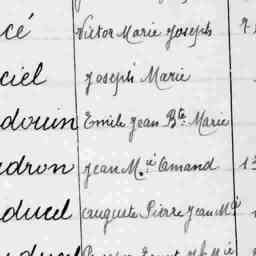 cé Victor Marie Joseph 7
ciel Joseph Marie
douin Emile Jean Bte Marie
dron Jean M.ie Amand 13
ducel Auguste Pierre Jean M.ie